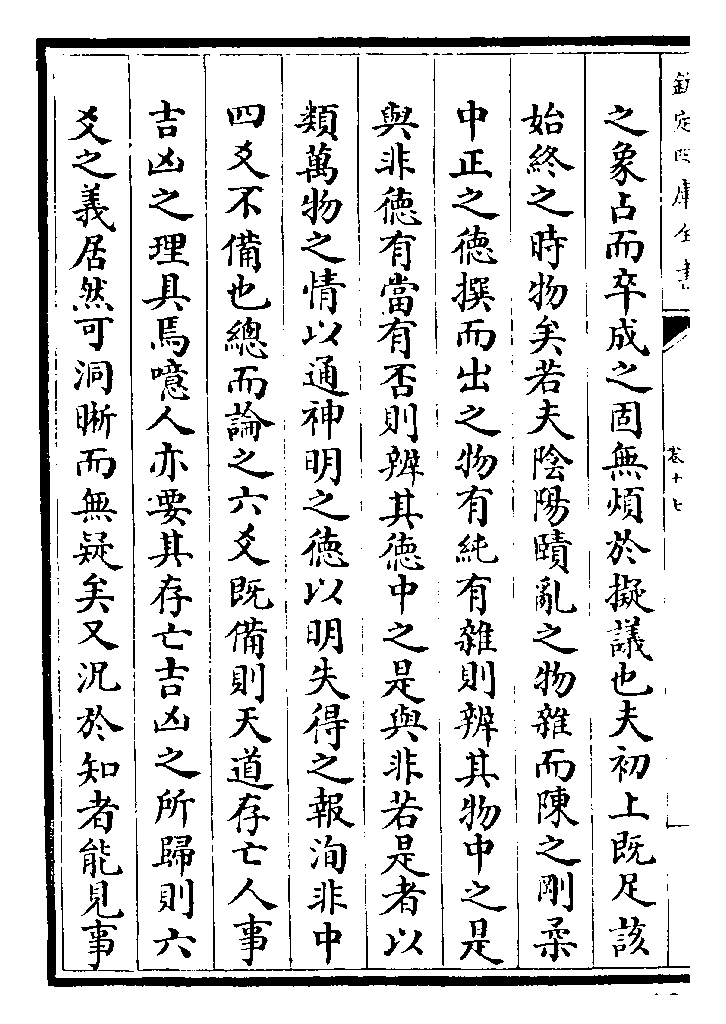 欽定四庫全書
卷十七
之象占而卒成之固無煩於擬議也夫初上既足該
始終之時物矣若夫陰陽賾亂之物雜而陳之剛柔
中正之德撰而出之物有純有雜則辨其物中之是
與非德有當有否則辨其德中之是與非若是者以
類萬物之情以通神明之德以明失得之報洵非中
四爻不備也總而論之六爻既備則天道存亡人事
吉凶之理具焉噫人亦要其存亡吉凶之所歸則六
爻之義居然可洞晰而無疑矣又況於知者能見事